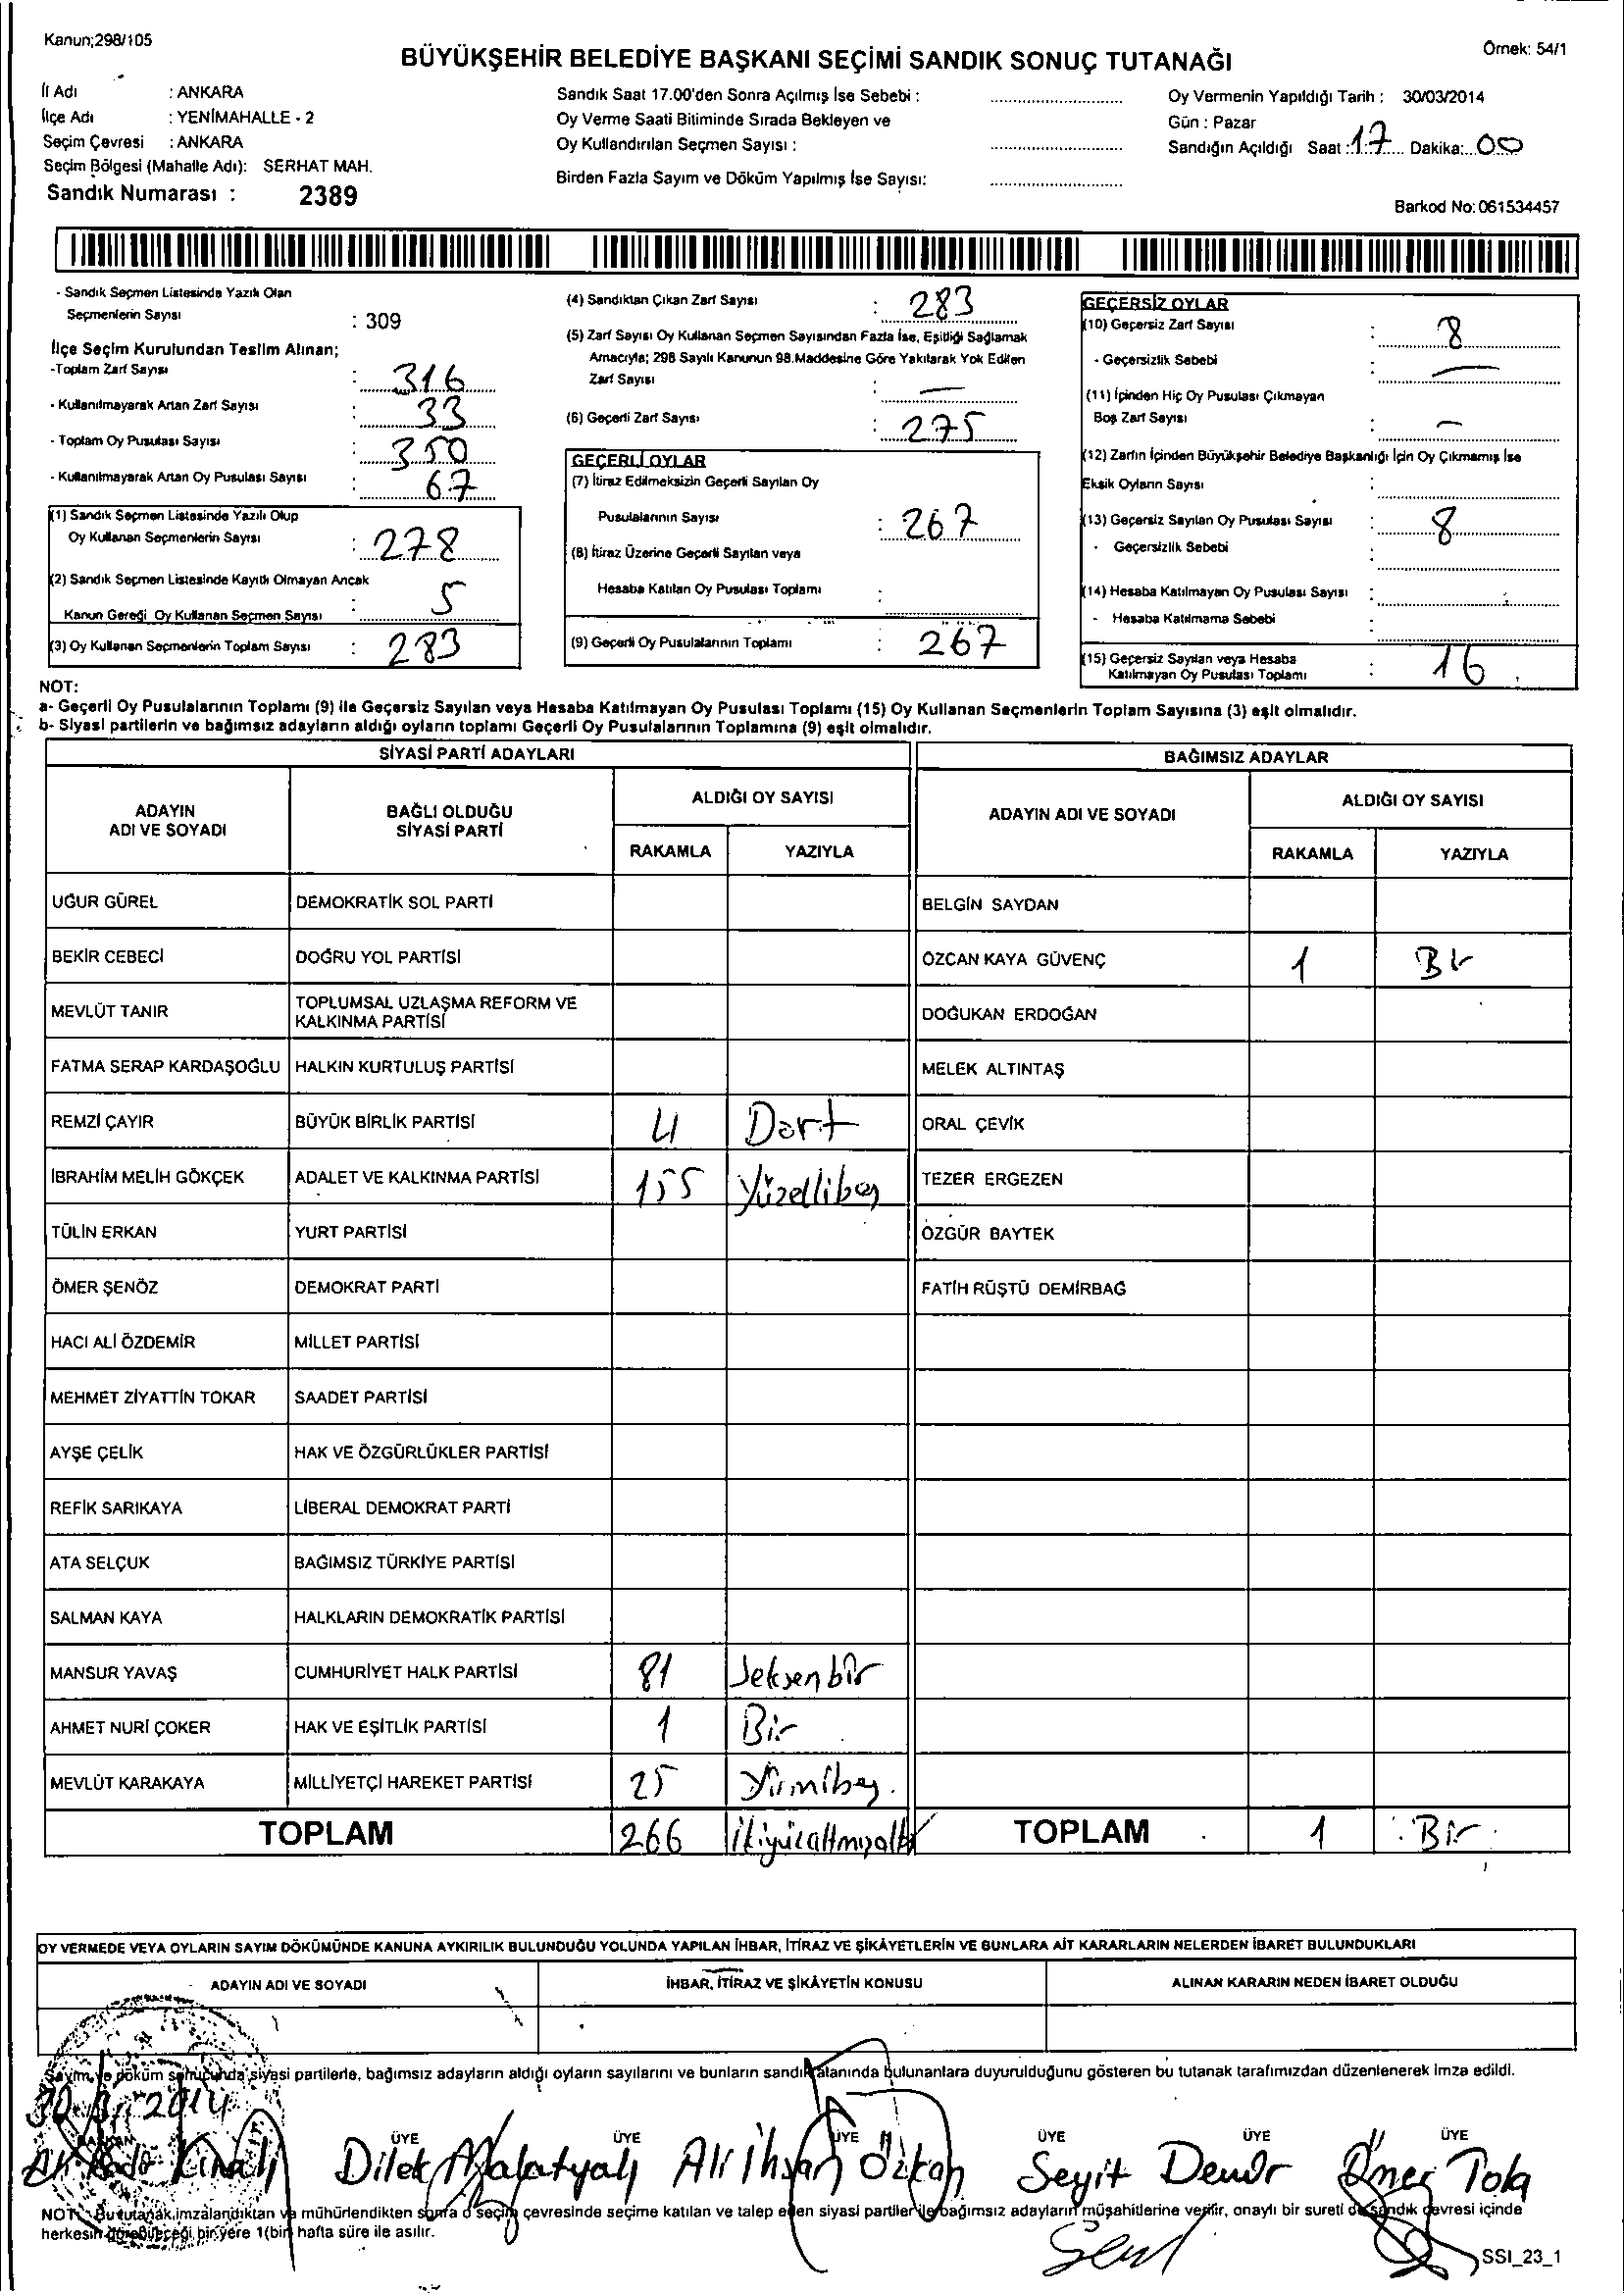 Kanun;298/105
Örnek: 54/1
BÜYÜKŞEHİR BELEDİYE BAŞKANI SEÇİMİ SANDIK SONUÇ TUTANAĞI
İl Adı : ANKARA
İlçe Adı : YENİMAHALLE - 2
Seçim Çevresi : ANKARA
Seçim Bölgesi (Mahalle Adı): SERHAT MAH.
Sandık Numarası : 2389
Sandık Saat 17.00'den Sonra Açılmış İse Sebebi :
Oy Verme Saati Bitiminde Sırada Bekleyen ve
Oy Kullandırılan Seçmen Sayısı :
Birden Fazla Sayım ve Döküm Yapılmış İse Sayısı:
Oy Vermenin Yapıldığı Tarih : 30/03/2014
Gün : Pazar
Sandığın Açıldığı Saat : 17 Dakika: 00
Barkod No: 061534457
- Sandık Seçmen Listesinde Yazılı Olan
Seçmenlerin Sayısı : 309
İlçe Seçim Kurulundan Teslim Alınan;
-Toplam Zarf Sayısı : 316
- Kullanılmayarak Artan Zarf Sayısı : 33
- Toplam Oy Pusulası Sayısı : 350
- Kullanılmayarak Artan Oy Pusulası Sayısı : 67
(1) Sandık Seçmen Listesinde Yazılı Olup
Oy Kullanan Seçmenlerin Sayısı : 278
(2) Sandık Seçmen Listesinde Kayıtlı Olmayan Ancak
Kanun Gereği Oy Kullanan Seçmen Sayısı : 5
(3) Oy Kullanan Seçmenlerin Toplam Sayısı : 283
(4) Sandıktan Çıkan Zarf Sayısı : 283
(5) Zarf Sayısı Oy Kullanan Seçmen Sayısından Fazla İse, Eşitliği Sağlamak
Amacıyla; 298 Sayılı Kanunun 98.Maddesine Göre Yakılarak Yok Edilen
Zarf Sayısı : —
(6) Geçerli Zarf Sayısı : 275
GEÇERLİ OYLAR
(7) İtiraz Edilmeksizin Geçerli Sayılan Oy
Pusulalarının Sayısı : 267
(8) İtiraz Üzerine Geçerli Sayılan veya
Hesaba Katılan Oy Pusulası Toplamı :
(9) Geçerli Oy Pusulalarının Toplamı : 267
GEÇERSİZ OYLAR
(10) Geçersiz Zarf Sayısı : 8
- Geçersizlik Sebebi : —
(11) İçinden Hiç Oy Pusulası Çıkmayan
Boş Zarf Sayısı : —
(12) Zarfın İçinden Büyükşehir Belediye Başkanlığı İçin Oy Çıkmamış İse
Eksik Oyların Sayısı :
(13) Geçersiz Sayılan Oy Pusulası Sayısı : 8
- Geçersizlik Sebebi :
(14) Hesaba Katılmayan Oy Pusulası Sayısı :
- Hesaba Katılmama Sebebi :
(15) Geçersiz Sayılan veya Hesaba
Katılmayan Oy Pusulası Toplamı : 16
NOT:
a- Geçerli Oy Pusulalarının Toplamı (9) ile Geçersiz Sayılan veya Hesaba Katılmayan Oy Pusulası Toplamı (15) Oy Kullanan Seçmenlerin Toplam Sayısına (3) eşit olmalıdır.
b- Siyasi partilerin ve bağımsız adayların aldığı oyların toplamı Geçerli Oy Pusulalarının Toplamına (9) eşit olmalıdır.
SİYASİ PARTİ ADAYLARI
ADAYIN ADI VE SOYADI BAĞLI OLDUĞU SİYASİ PARTİ ALDIĞI OY SAYISI RAKAMLA YAZIYLA
UĞUR GÜREL DEMOKRATİK SOL PARTİ
BEKİR CEBECİ DOĞRU YOL PARTİSİ
MEVLÜT TANIR TOPLUMSAL UZLAŞMA REFORM VE KALKINMA PARTİSİ
FATMA SERAP KARDAŞOĞLU HALKIN KURTULUŞ PARTİSİ
REMZİ ÇAYIR BÜYÜK BİRLİK PARTİSİ 4 Dört
İBRAHİM MELİH GÖKÇEK ADALET VE KALKINMA PARTİSİ 155 Yüzellibeş
TÜLİN ERKAN YURT PARTİSİ
ÖMER ŞENÖZ DEMOKRAT PARTİ
HACI ALİ ÖZDEMİR MİLLET PARTİSİ
MEHMET ZİYATTİN TOKAR SAADET PARTİSİ
AYŞE ÇELİK HAK VE ÖZGÜRLÜKLER PARTİSİ
REFİK SARIKAYA LİBERAL DEMOKRAT PARTİ
ATA SELÇUK BAĞIMSIZ TÜRKİYE PARTİSİ
SALMAN KAYA HALKLARIN DEMOKRATİK PARTİSİ
MANSUR YAVAŞ CUMHURİYET HALK PARTİSİ 81 Seksenbir
AHMET NURİ ÇOKER HAK VE EŞİTLİK PARTİSİ 1 Bir
MEVLÜT KARAKAYA MİLLİYETÇİ HAREKET PARTİSİ 25 Yirmibeş.
TOPLAM 266 İkiyüzaltmışaltı
BAĞIMSIZ ADAYLAR
ADAYIN ADI VE SOYADI ALDIĞI OY SAYISI RAKAMLA YAZIYLA
BELGİN SAYDAN
ÖZCAN KAYA GÜVENÇ 1 Bir
DOĞUKAN ERDOĞAN
MELEK ALTINTAŞ
ORAL ÇEVİK
TEZER ERGEZEN
ÖZGÜR BAYTEK
FATİH RÜŞTÜ DEMİRBAĞ
TOPLAM 1 Bir
OY VERMEDE VEYA OYLARIN SAYIM DÖKÜMÜNDE KANUNA AYKIRILIK BULUNDUĞU YOLUNDA YAPILAN İHBAR, İTİRAZ VE ŞİKÂYETLERİN VE BUNLARA AİT KARARLARIN NELERDEN İBARET BULUNDUKLARI
ADAYIN ADI VE SOYADI İHBAR, İTİRAZ VE ŞİKÂYETİN KONUSU ALINAN KARARIN NEDEN İBARET OLDUĞU
Sayım ve döküm sonucunda siyasi partilerle, bağımsız adayların aldığı oyların sayılarını ve bunların sandık alanında bulunanlara duyurulduğunu gösteren bu tutanak tarafımızdan düzenlenerek imza edildi.
BAŞKAN ÜYE ÜYE ÜYE ÜYE ÜYE ÜYE
Dilek Malatyalı Ali İhsan Özkan Seyit Demir Ömer Tola
NOT: Bu tutanak imzalandıktan ve mühürlendikten sonra o seçim çevresinde seçime katılan ve talep eden siyasi partiler ile bağımsız adayların müşahitlerine verilir, onaylı bir sureti de sandık çevresi içinde
herkesin görebileceği bir yere 1(bir) hafta süre ile asılır.
SSI_23_1